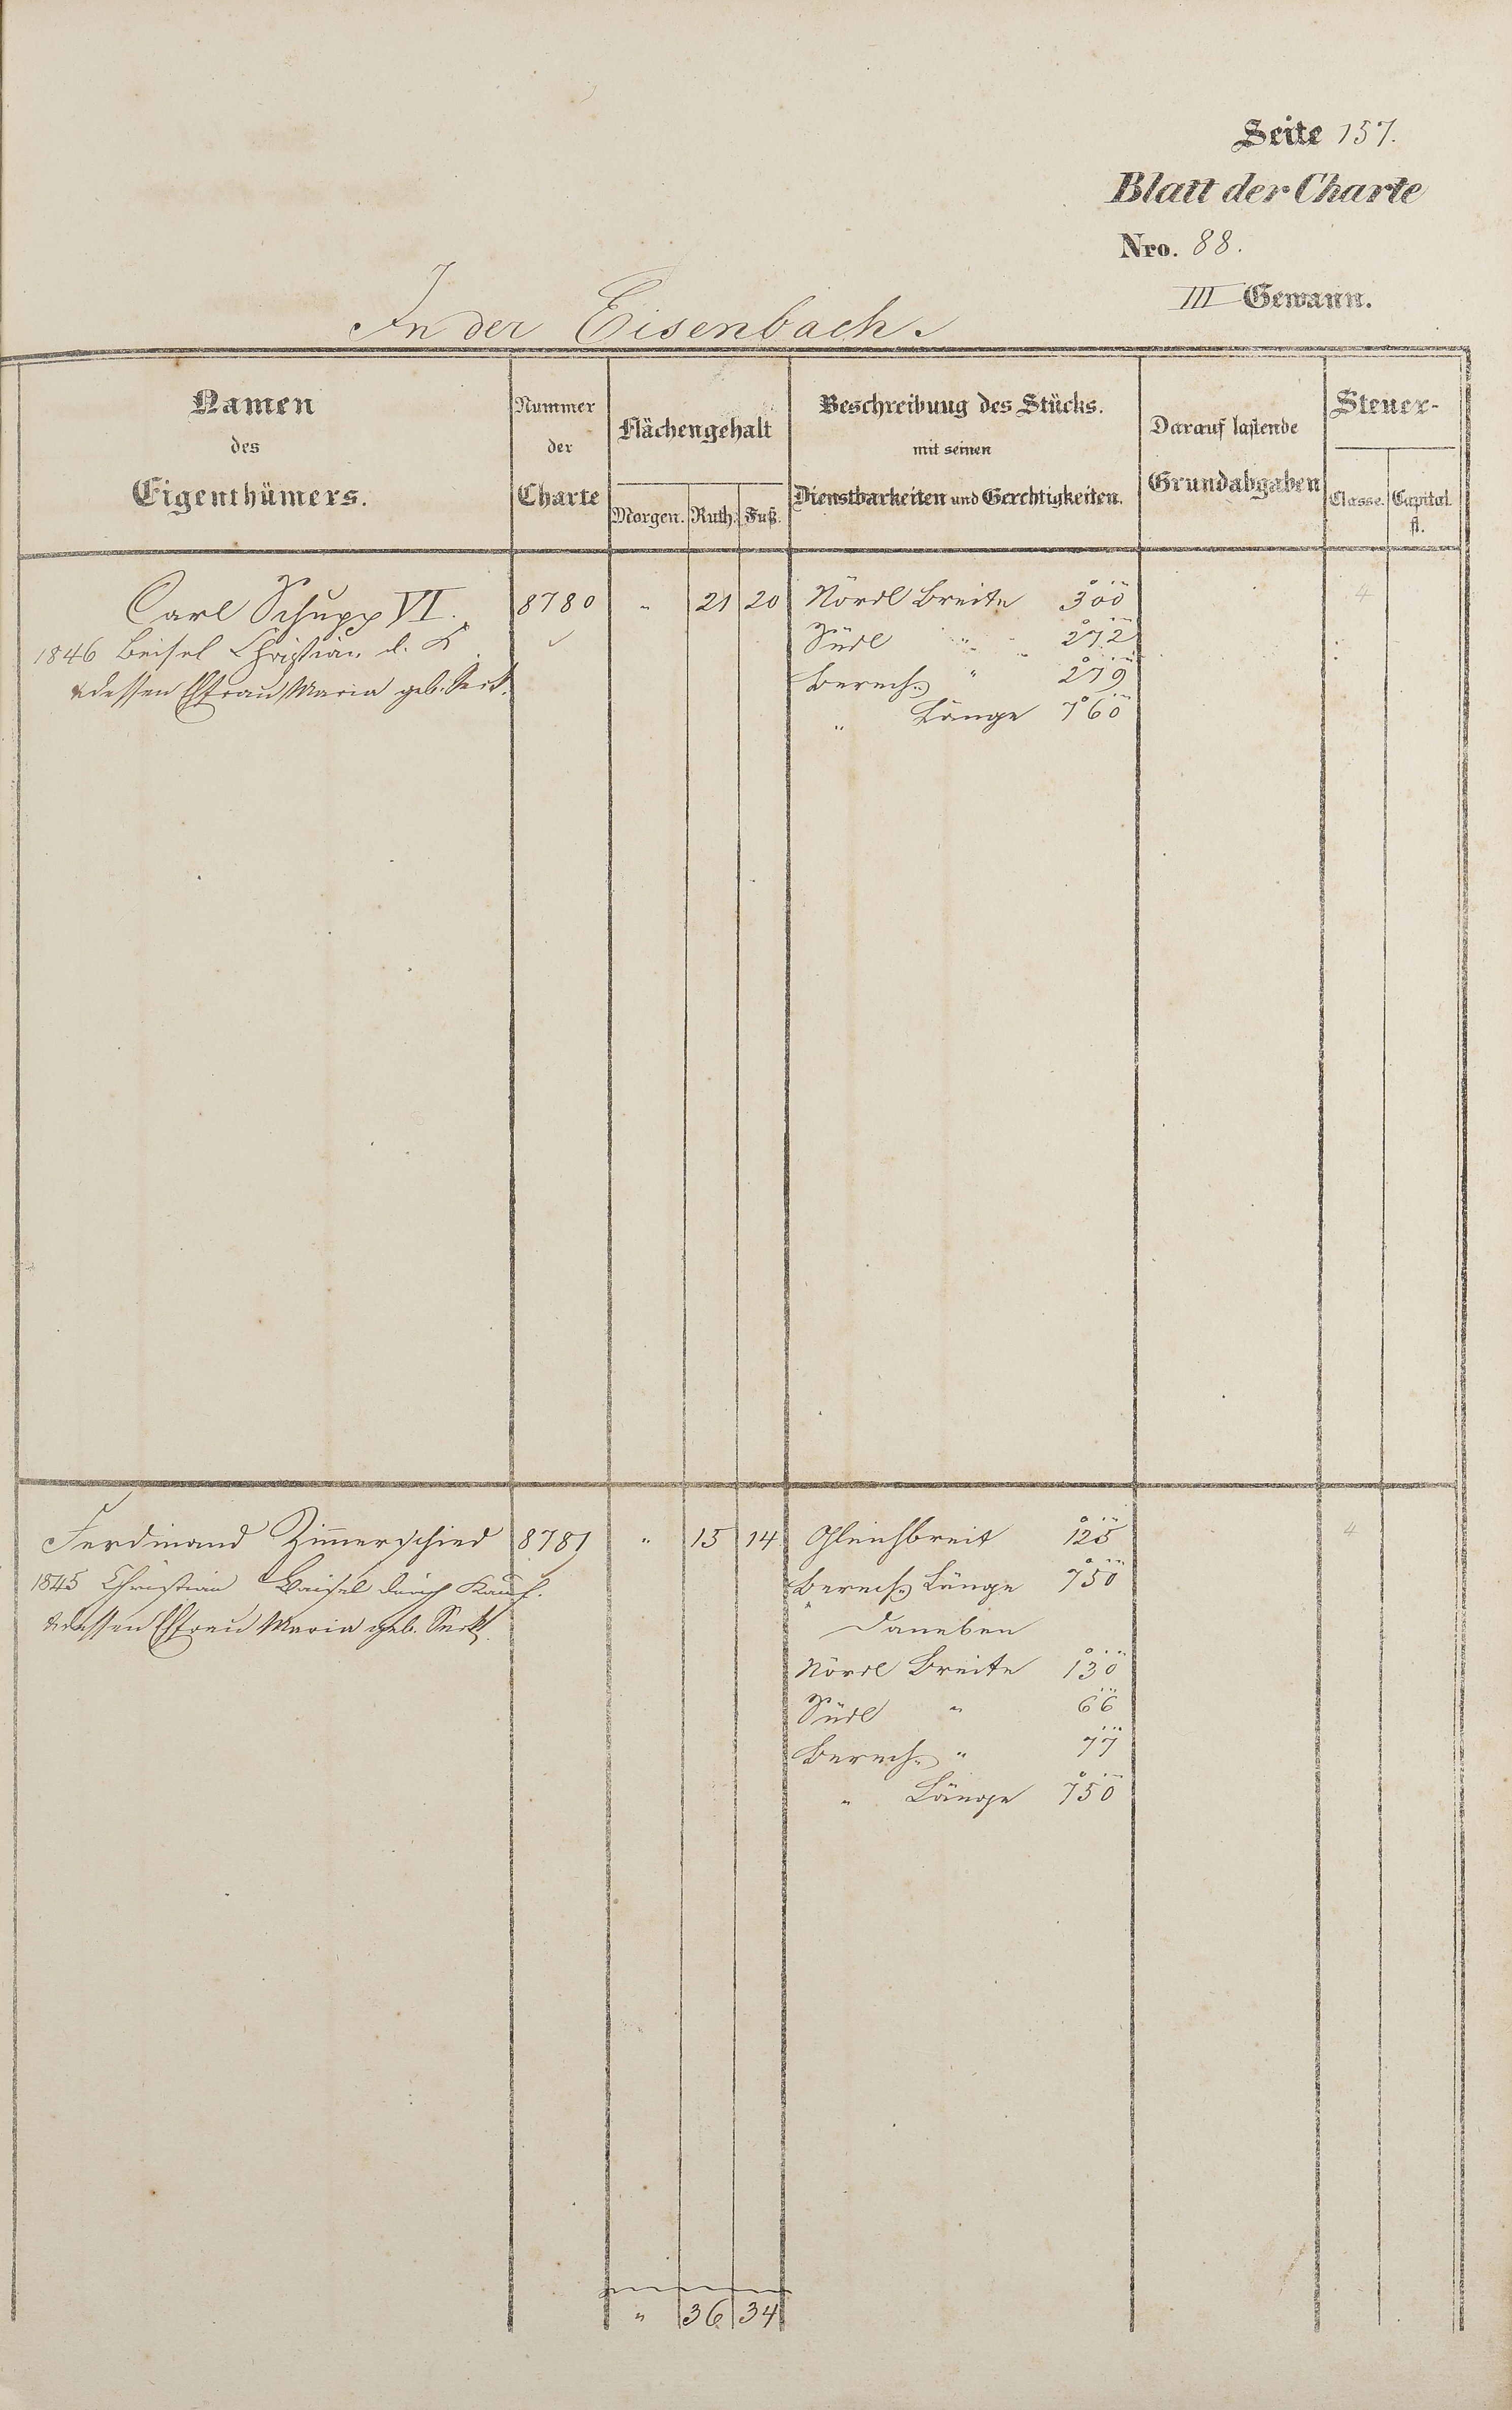 Seite 157.
Blatt der Charte
Nro. 88.
III Gewann.
In der Eisenbach.
Namen des Eigenthümers.
Nummer der Charte
Flächengehalt
Morgen. Ruth. Fuß.
Beschreibung des Stücks.
mit seinen
Dienstbarkeiten und Gerechtigkeiten.
Darauf lastende
Grundabgaben
Steuer-
Classe. Capital. fl.
Carl Schupp VI. 8780 " 21 20 Nördl Breite 300 4
1846 Beisel Christian d. K. Südl " 272
& dessen Ehfrau Maria geb. Berech. " 279
" Länge 760
Ferdinand Zimmerschied 8781 " 15 14 Gleichbreit 125 4
1845 Christian Baisel durch Kauf. Berech. Länge 750
& dessen Ehfrau Maria geb. Daneben
Nördl Breite 130
Südl " 66
Berech. " 77
" Länge 750
" 36 34